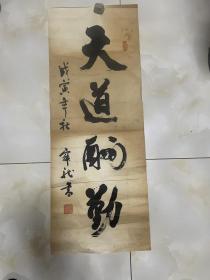 天道酬勤
戊寅年秋